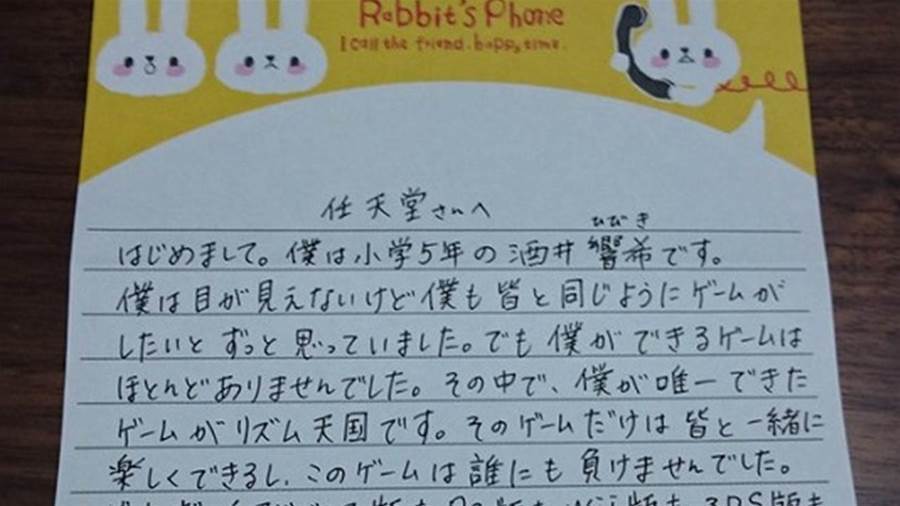 Rabbit's Phone
I call the friend. happy time.
任天堂さんへ
ひびき
はじめまして。僕は小学5年の酒井 響希です。
僕は目が見えないけど僕も皆と同じようにゲームが
したいとずっと思っていました。でも僕ができるゲームは
ほとんどありませんでした。その中で、僕が唯一できた
ゲームがリズム天国です。そのゲームだけは皆と一緒に
楽しくできるし、このゲームは誰にも負けませんでした。